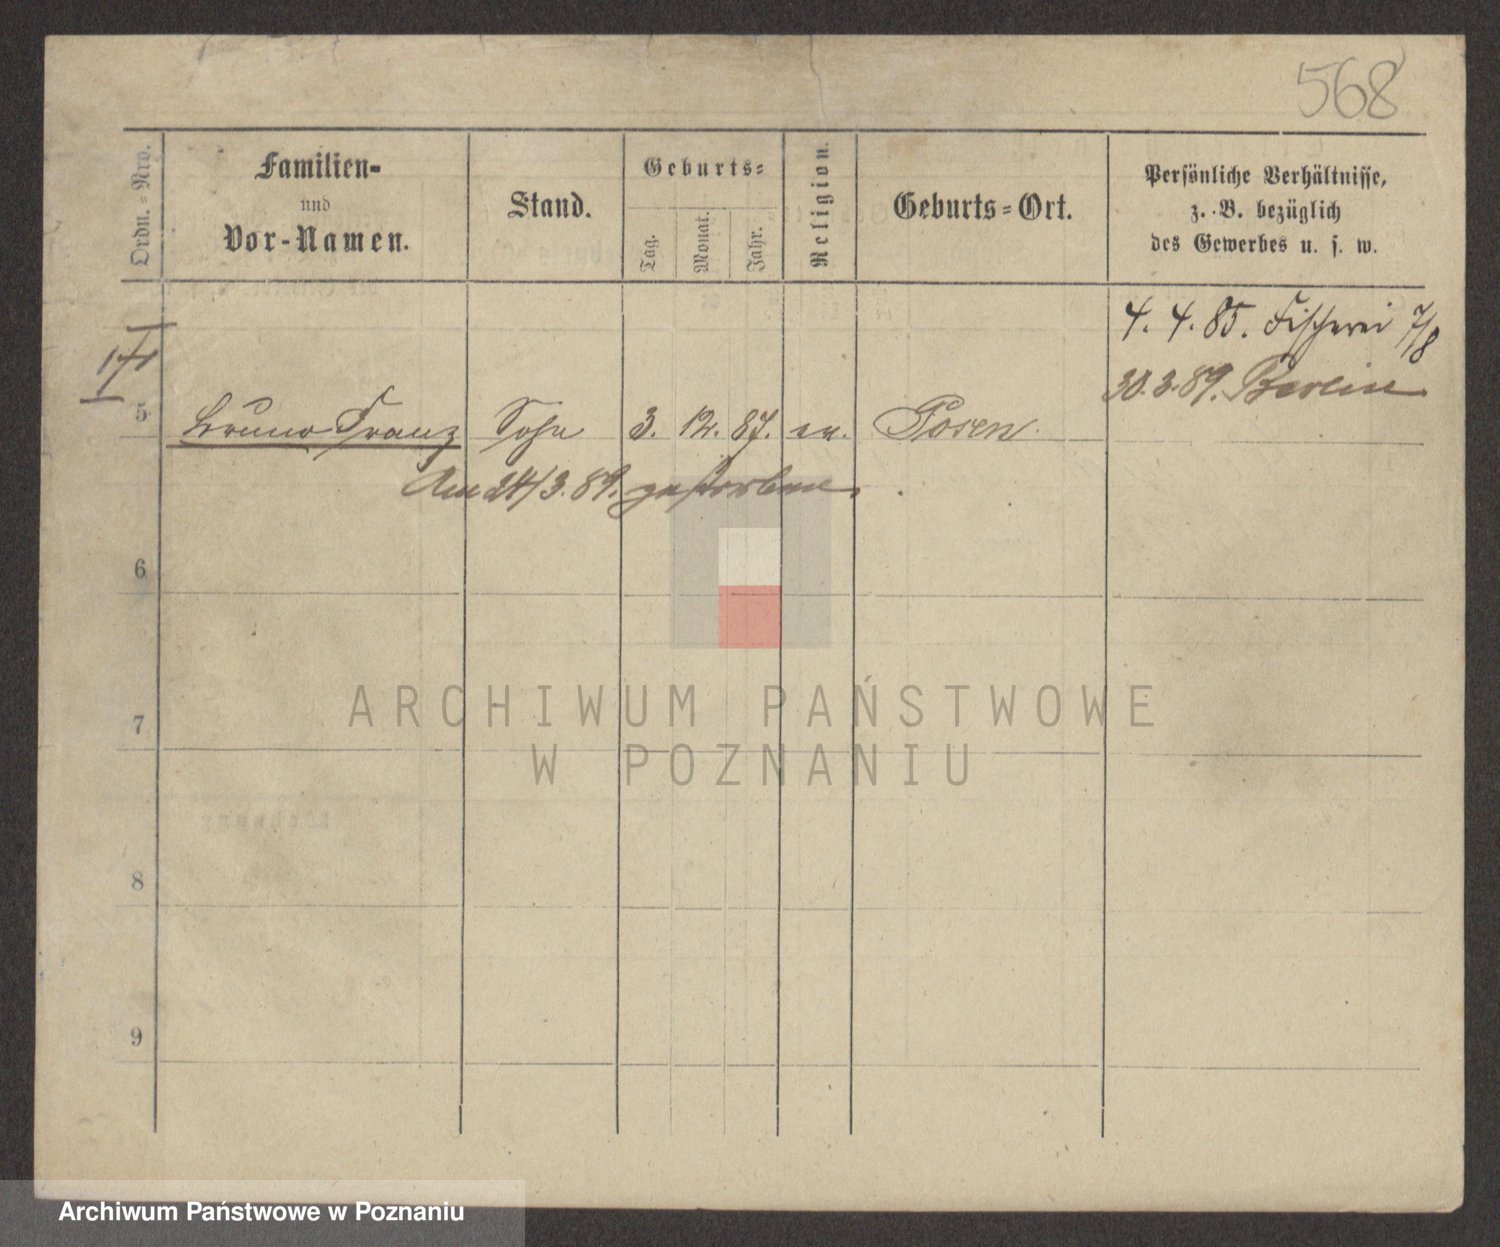 568
Ordn.-Nro.
Familien-
und
Vor-Namen.
Stand.
Geburts-
Tag.
Monat.
Jahr.
Religion.
Geburts-Ort.
Persönliche Verhältnisse,
z. B. bezüglich
des Gewerbes u. s. w.
4. 4. 85. Fischerei 7/8
30.3.89. Berlin
5 Bruno Franz Sohn 3. 12. 87. ev. Posen
Am 24/3.89. gestorben.
6
7
8
9
ARCHIWUM PAŃSTWOWE
W POZNANIU
Archiwum Państwowe w Poznaniu